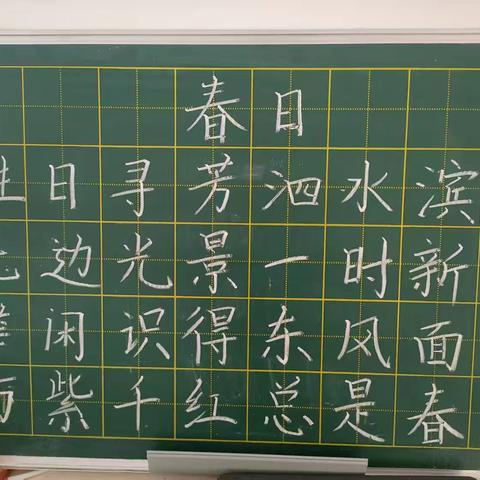 春日
日寻芳泗水滨
边光景一时新
闲识得东风面
万紫千红总是春